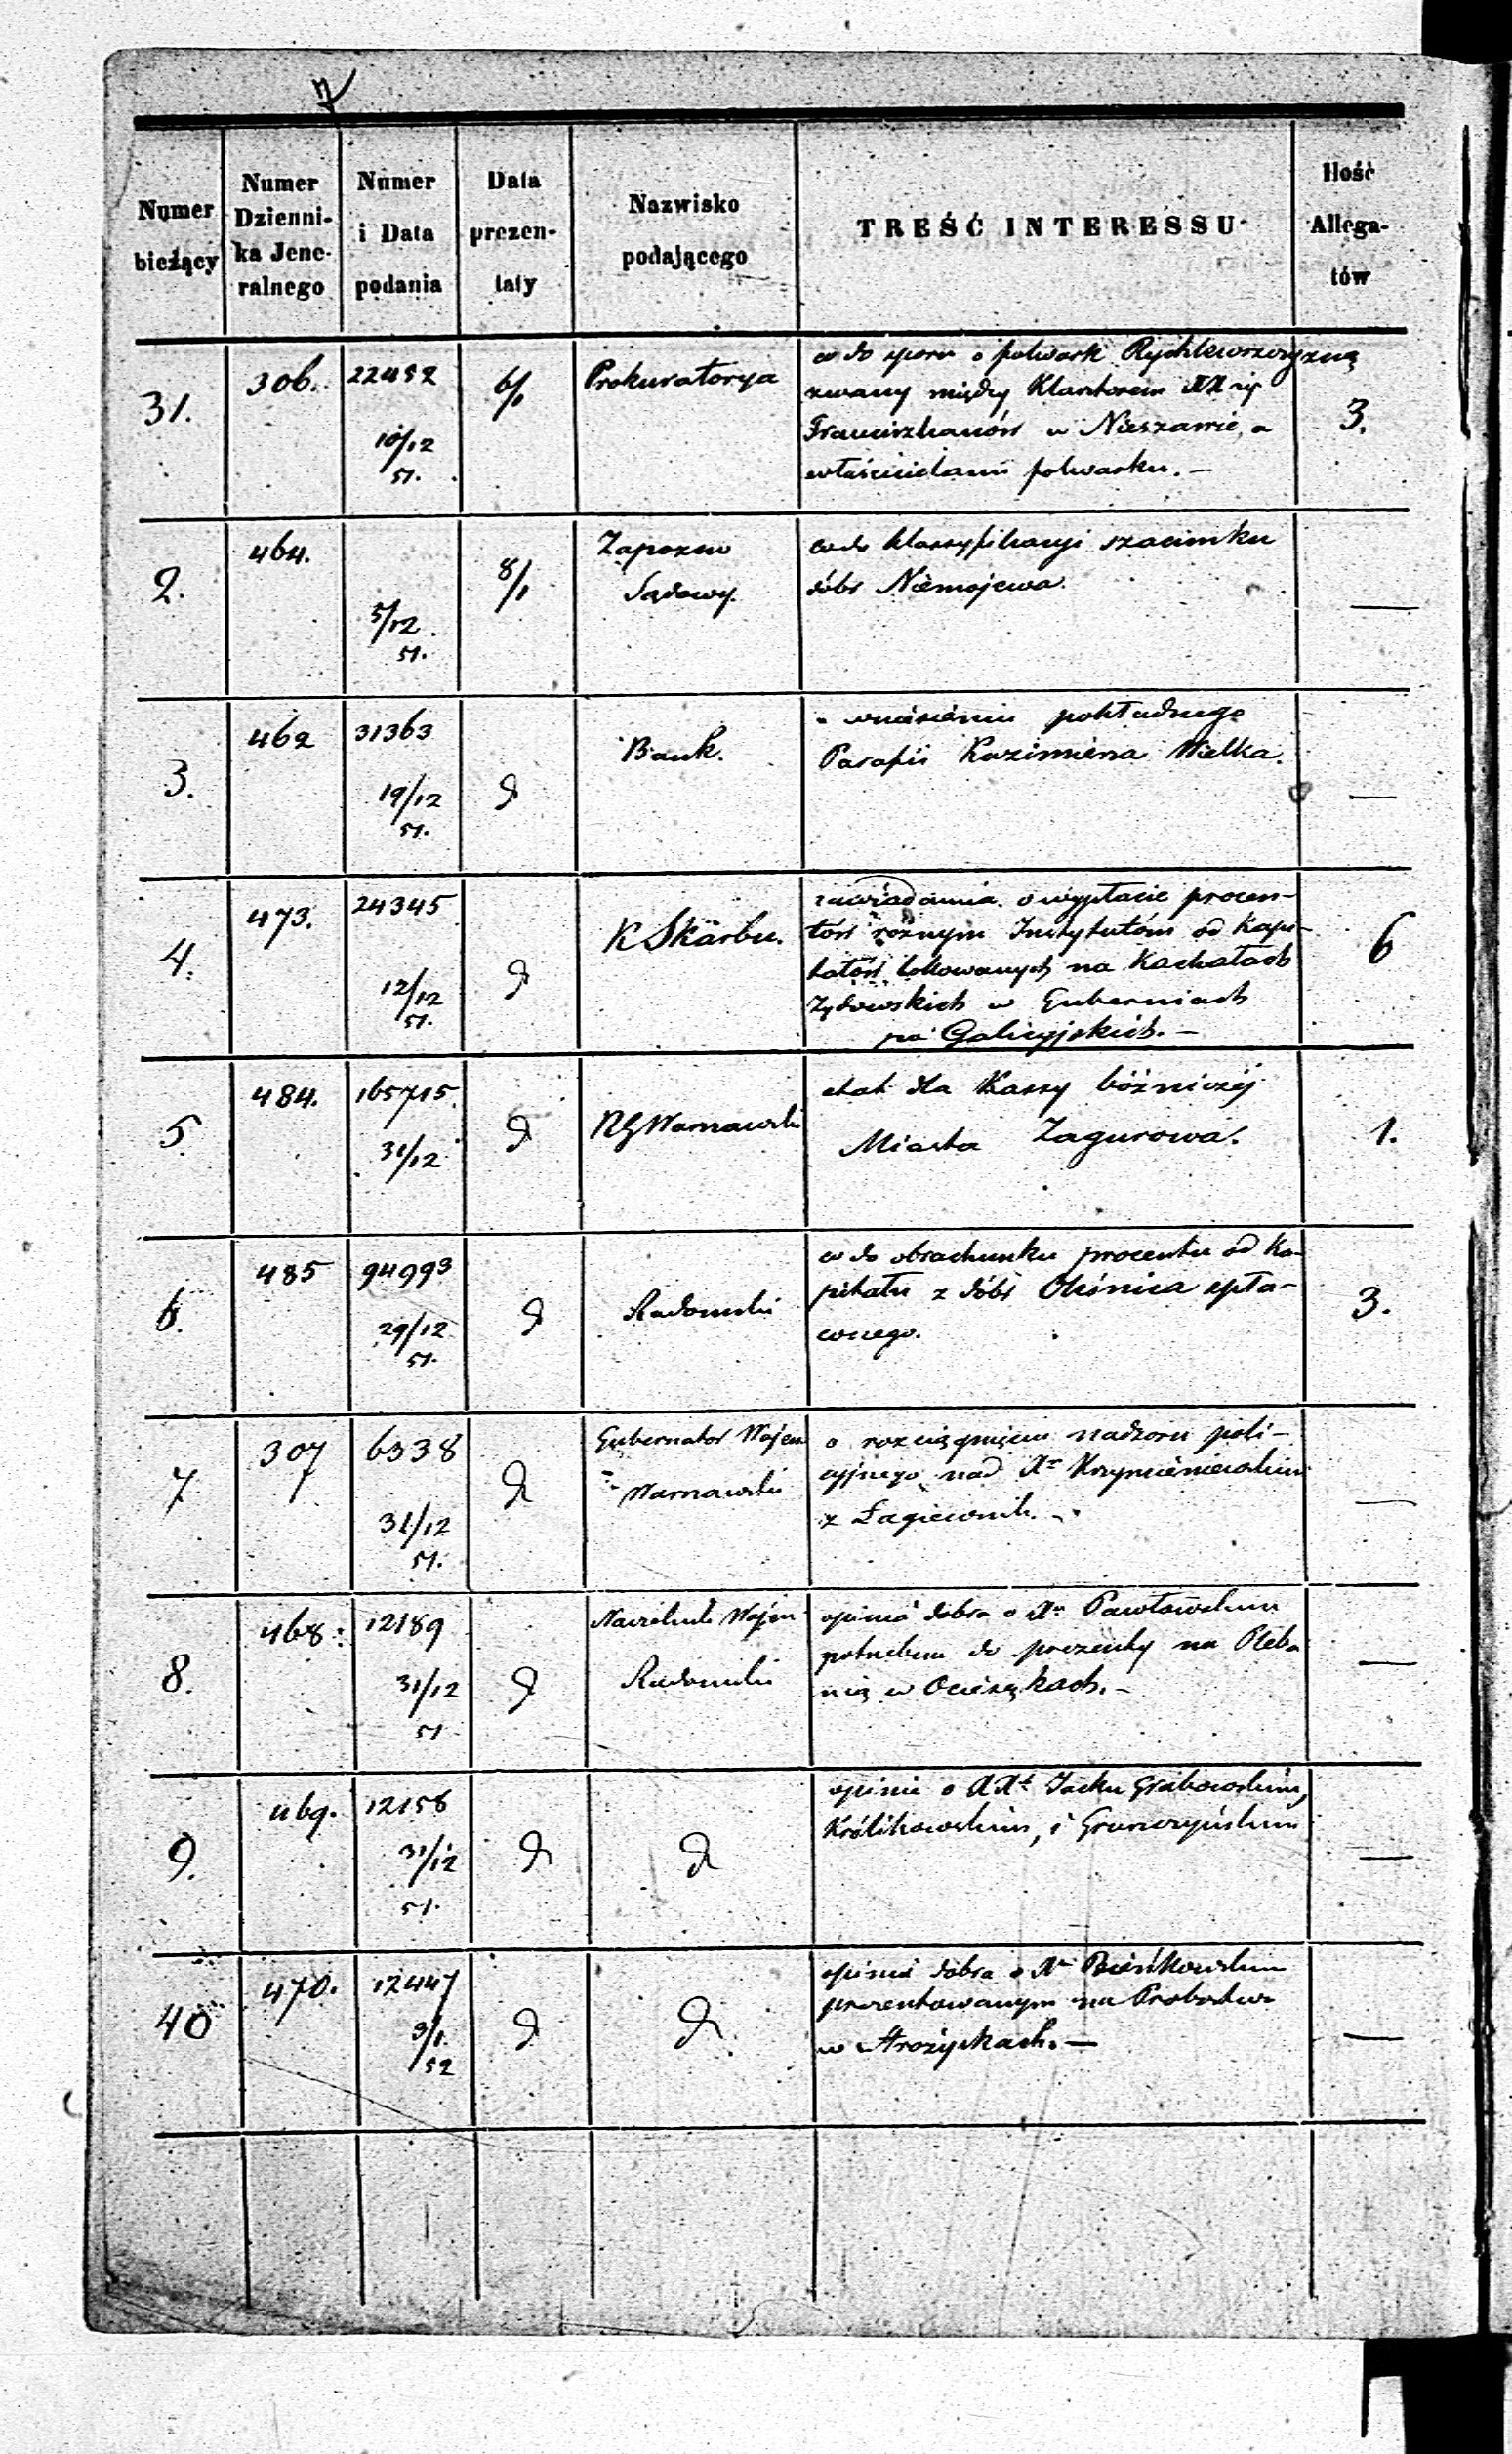 Numer bieżący
Numer Dzienni-
ka Jene-
ralnego
Numer i Data podania
Data prezen-
taty
Nazwisko podającego
TREŚĆ INTERESSU
Ilość Allega-
tów
31.
306.
22452
10/12
51.
6/1
Prokuratorya
co do sporu o folwark Rychlewszczyzną
zwany między Klasztorem XX
Franciszkanów w Nieszawie, a
właścicielami folwarku. —
3.
2.
464.
5/12
51.
8/1
Zapozew
Sądowy.
co do klassyfikacyi szacunku
dóbr Niemojewa.
—
3.
462
31363
19/12
51.
d
Bank.
o wniesieniu pokładnego
Parafii Kazimierza Wielka.
—
4.
473.
24345
12/12
51.
d
K Skarbu.
zawiadamia o wypłacie procen-
tów różnym Instytutom od Kapi-
tałów lokowanych na Kachałach
Żydowskich w Guberniach
po Galicyjskich. —
6
5
484.
165715.
31/12
d
RGWarszawski
etat dla Kassy bóżniczéj
Miasta Zagurowa.
1.
6.
485
94993
29/12
51.
d
Radomski
co do obrachunku procentu od Ka-
pitału z dóbr Oleśnica spła-
conego.
3.
7
307
6338
31/12
51.
d
Gubernator Wojen
Warszawski
o rozciągnięciu nadzoru poli-
cyjnego nad Xm
z Łagiewnik. —
—
8.
468.
12189
31/12
51
d
Naczelnik Wojen
Radomski
opinia dobra o Xu Pawłowskim
potrzebna do prezenty na Pleba
nią w Ociesękach. —
—
9.
469.
12158
31/12
51.
d
d
opinie o XXt Jacku Grabowskim,
Królikowskim, i
—
40
470.
12447
3/1.
52
d
d
opinia dobra o Xu Bieńkowskim
prezentowanym na Probostwo
w Strożyskach. —
—